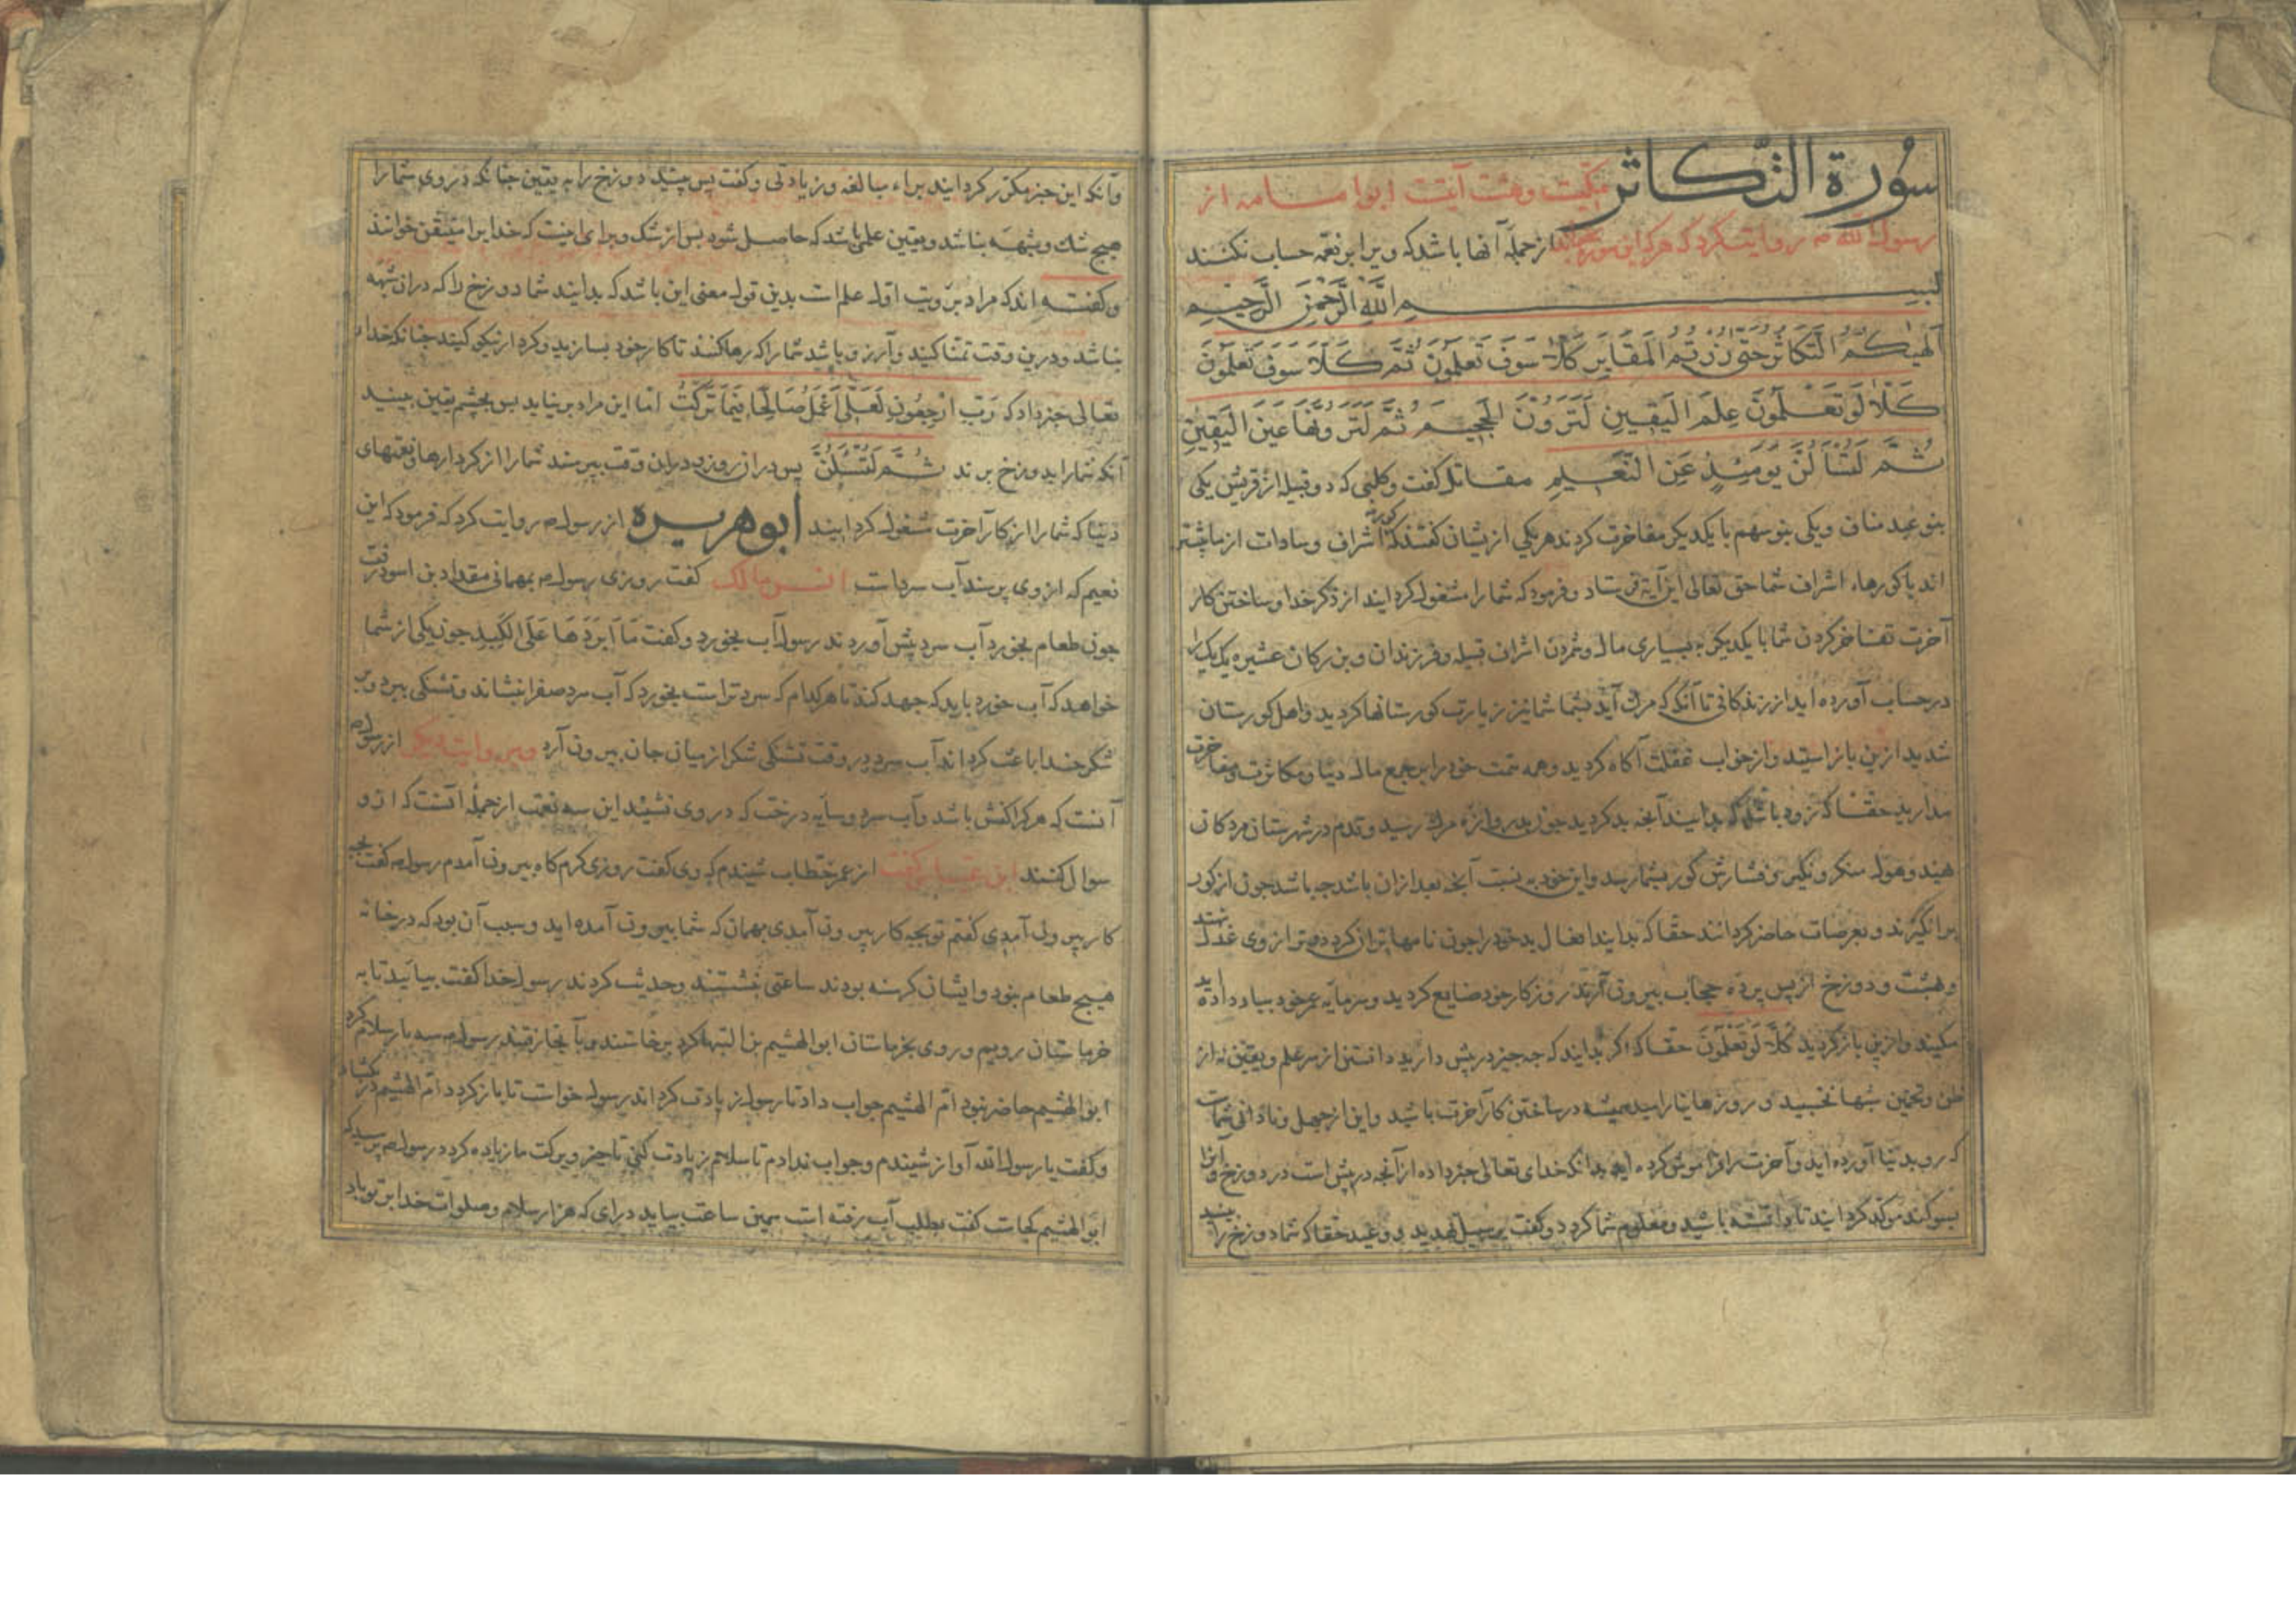 سُورة التَّكاثر مکیّست و هشت آیتست ابوامامه از
رسول الله ص روایت کرد که هرکه این سوره بخواند از جمله آنها باشد که ویرا بر نعمه حساب نکنند
بسم الله الرحمن الرحیم
الهیكُمُ التَّكَاثُرُ حَتّی زُرْتُمُ المَقَابِرَ كَلَّا سَوفَ تَعلَمُونَ ثُمَّ كَلَّا سَوفَ تَعلَمُونَ
كَلَّا لَو تَعْلَمُونَ عِلمَ الیَقِینِ لَتَرَوُنَّ الجَحِیمَ ثُمَّ لَتَرَوُنَّهَا عَینَ الیَقِینِ
ثُمَّ لَتُسْأَلُنَّ یَومَئِذٍ عَنِ النَّعِیمِ مقاتل کفت و کلبی که دو قبیله از قریش یکی
بنو عبد مناف و یکی بنو سهم با یکدیکر مفاخرت کردند هر یکی از یشان کفتند که اشراف و سادات از ما بیشتر
اند یا کورهاء اشراف شما حق تعالی این آیة فرستاد و فرمود که شما را مشغول کردایند از ذکر خدا و ساختن کار
آخرت تفاخر کردن شما با یکدیکر به بسیاری مال و شمردن اشراف قبیله و فرزندان و بزرکان عشیره یک یک را
در حساب آورده اید از زندکانی تا آنکه که مرک آید بشما شما نیز بزیارت کورستانها کردید و اهل کورستان
شدید ازین باز ایستید و از خواب غفلت آکاه کردید و همه همت خود را بر جمع مال دنیا و مکاثرت و مفاخرت
مدارید حقا که زود باشد که بدایند آنچه بد کردید چون بدروازه مرک رسید و قدم در شهرستان مردکان
نهید و هول منکر و نکیر و فشارش کور بشما رسد و این خود به نسبت آنچه بعد ازان باشد چه باشد چون از کور
برانکیزند و بعرصات حاضر کردانند حقا که بدایند افعال بد خود را چون نامها
و بهشت و دوزخ از پس پرده حجاب بیرون آرند روزکار خود ضایع کردید و سرمایه عمر خود بباد داده اید
مکنید و ازین باز کردید كَلَّا لَو تَعْلَمُونَ حقا که اکر بدایند که چه چیز در پیش دارید دانستن از سر علم و یقین نه از
ظن و تخمین شبها نخسبید و روزها نیارامید همیشه در ساختن کار آخرت باشید و این از جهل و نادانی شماست
که رو بدنیا آورده اید و آخرت را فراموش کرده اید بدانکه خدای تعالی خبر داده از آنچه در پیش است در دوزخ و آنرا
بسوکند موکد کردایند تا دانسته باشید و معلوم شما کردد و کفت بر سبیل تهدید و وعید حقا که شما دوزخ را بینید
وآنکه این خبر مکرّر کردایند براء مبالغه و زیادتی و کفت پس بینید دوزخ را به یقین چنانکه در روی شما را
هیچ شک و شبهه نباشد و یقین علمی باشد که حاصل شود پس از شک و برای اینست که خدایرا متیقن نخوانند
و کفته اند که مراد برویت اول علم است بدین قول معنی این باشد که بدایند شما دوزخ را که دران شبهه
نباشد و درین وقت تمنّا کنید و آرزو باشد شما را که رها کنند تا کار خود بسازید و کردار نیکو کنید چنانکه خدای
تعالی خبر داد که رَبِّ ارْجِعُونِ لَعَلِّی اَعْمَلُ صَالِحًا فِیمَا تَرَكْتُ اما این مراد بر نیاید پس بچشم یقین ببینید
آنکه شما را بدوزخ برند ثُمَّ لَتُسْئَلُنَّ پس دران روز و دران وقت بپرسند شما را از کردارها و نعمتهای
دنیا که شما را از کار آخرت مشغول کردایند ابو هریره از رسول ص روایت کرد که فرمود که این
نعیم که از وی پرسند آب سرد است انس مالک کفت روزی رسول ص بمهمانی مقداد بن اسود رفت
چون طعام بخورد آب سرد پیش آوردند رسول آب بخورد و کفت مَا اَبرَدَهَا عَلَی الكَبِدِ چون یکی از شما
خواهد که آب خورد باید که جهد کند تا هرکدام که سردتر است بخورد که آب سرد صفرا بنشاند و تشنکی ببرد و
شکر خدا را باعث کرداند آب سرد در وقت تشنکی شکر از میان جان بیرون آرد و بروایت دیکر از رسول ص
آنست که هرکرا کفش باشد و آب سرد و سایه درخت که در وی نشیند این سه نعمت از جمله آنست که ازو
سوال کنند ابن عباس کفت از عمر خطاب شنیدم که وی کفت روزی کرم کاه بیرون آمدم رسول ص کفت بچه
کار بیرون آمدی کفتم تو بچه کار بیرون آمدی بهمان که شما بیرون آمده اید و سبب آن بود که در خانه
هیچ طعام نبود و ایشان کرسنه بودند ساعتی بنشستند و حدیث کردند رسول خدا کفت بیائید تا به
خرماستان رویم و روی بخرماستان ابو الهشیم بن التیهان کرد برخاستند و بآنجا رفتند رسول ص سه بار سلام کرد
ابو الهشیم حاضر نبود ام الهشیم جواب داد تا رسول زیادت کرداند رسول خواست تا باز کردد ام الهشیم در بکشاد
و کفت یا رسول الله آواز شنیدم و جواب ندادم تا سلام زیادت کنی تا خیر و برکت ما زیاده کردد رسول ص پرسید که
ابو الهشیم کجاست کفت بطلب آب رفته است همین ساعت بیاید درای که هزار سلام و صلوات خدا بر تو باد